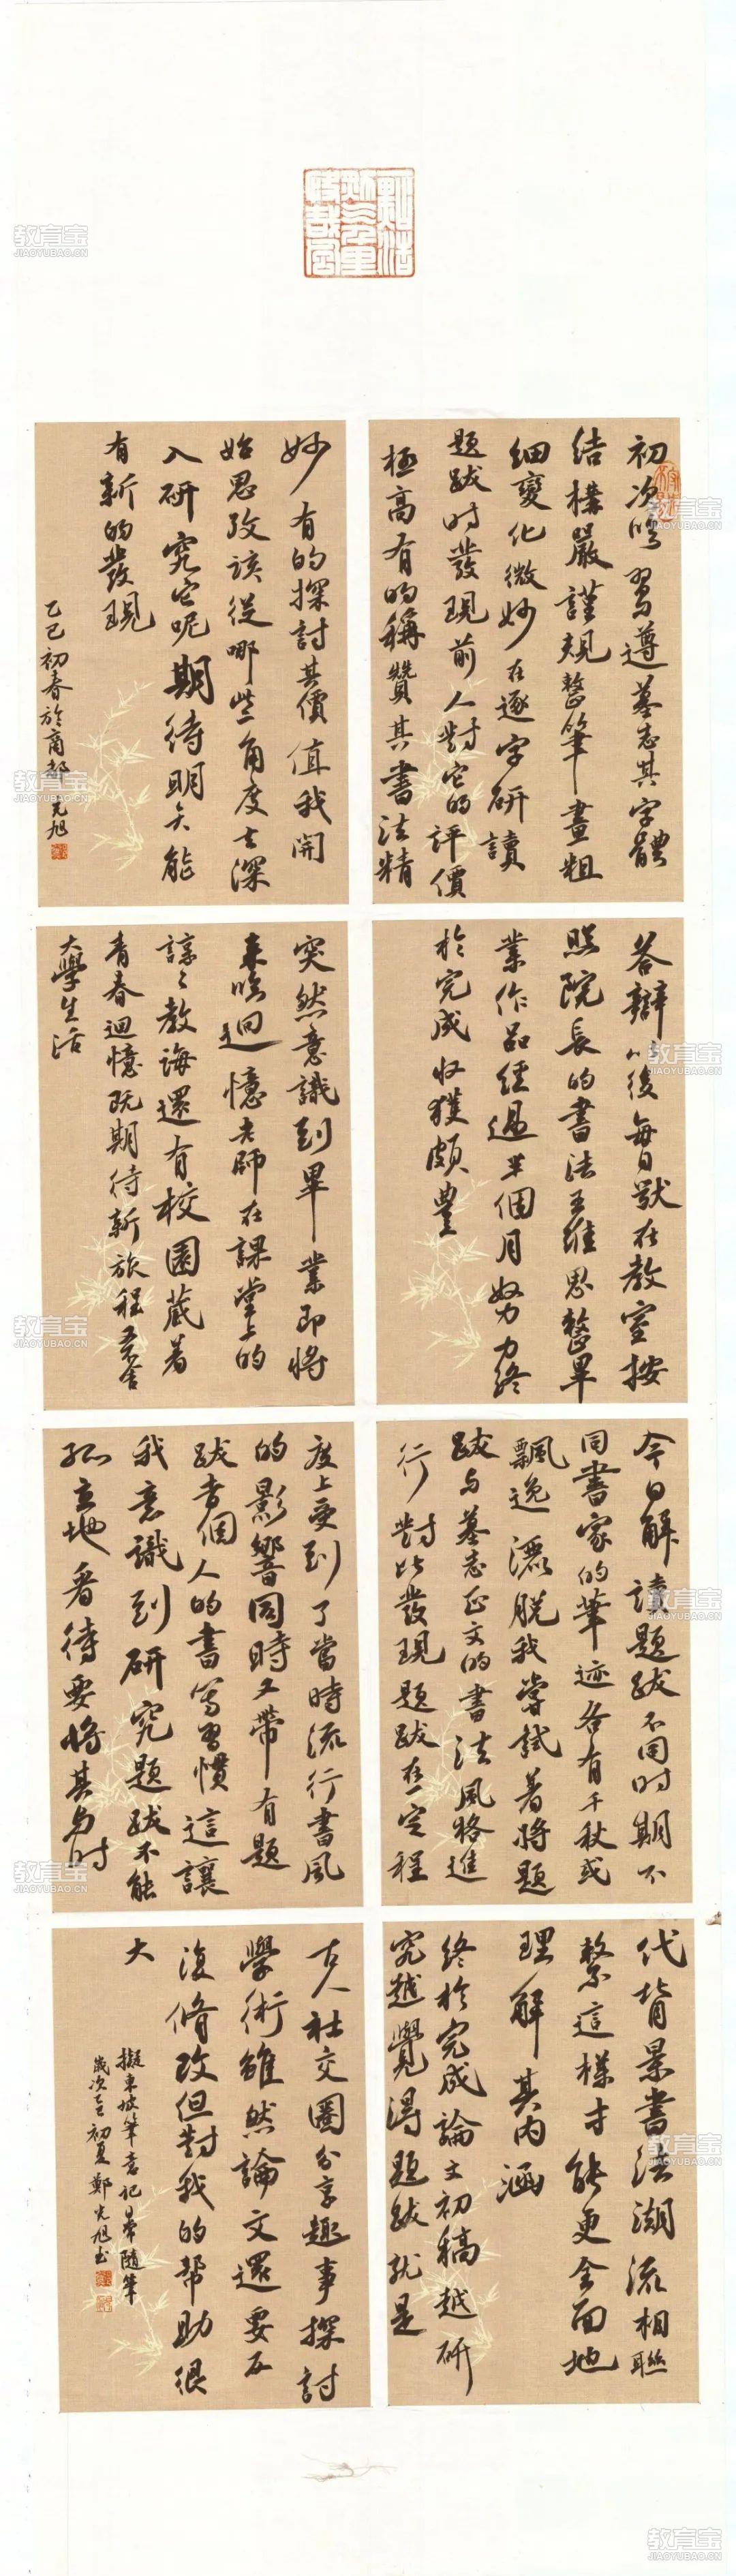 初次鳴翯遵墓志其字體
結構嚴謹規整筆畫粗
細變化微妙在逐字研讀
題跋时發現前人對它的評價
極高有的稱贊其書法精
妙有的探討其價值我開
始思考該從哪些角度去深
入研究它呢期待明天能
有新的發現
乙巳初春於商都
光旭
答辯以後每日獣在教室按
照院長的書法五維思整畢
業作品經過半個月努力終
於完成收獲頗豐
突然意識到畢業即將
来臨回憶老師在課堂上的
諄々教誨還有校園藏着
青春迴憶既期待新旅程又不舍
大學生活
今日解讀題跋不同时期不
同書家的筆迹各有千秋或
飄逸灑脱我嘗試着將題
跋与墓志正文的書法風格進
行對比發現題跋在一定程
度上受到了當時流行書風
的影響同時又帶有題
跋者個人的書寫習慣這讓
我意識到研究題跋不能
孤立地看待要將其与时
代背景書法潮流相聯
繫這樣才能更全面地
理解其内涵
終於完成論文初稿越研
究越覺得題跋就是
古人社交圈分享趣事探討
學術雖然論文還要反
復修改但對我的帮助很
大
擬東坡筆意記畢業隨筆
歲次乙巳初夏鄭光旭书
教育宝
JIAOYUBAO.CN
教育宝
JIAOYUBAO.CN
教育宝
JIAOYUBAO.CN
教育宝
JIAOYUBAO.CN
教育宝
JIAOYUBAO.CN
教育宝
JIAOYUBAO.CN
教育宝
JIAOYUBAO.CN
教育宝
JIAOYUBAO.CN
教育宝
JIAOYUBAO.CN